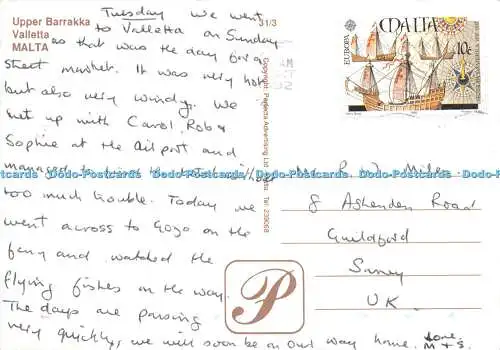 Upper Barrakka
Valletta
MALTA
31/3
Tuesday We went
to Valletta on Sunday
as that was the day for a
street market. It was very hot
but also very windy. We
met up with Carol, Rob &
Sophie at the airport and
managed to
too much trouble. Today we
went across to Gozo on the
ferry and watched the
flying fishes on the way.
The days are passing
very quickly, we will soon be on our way home. Love,
M + S.
Copyright Perfecta Advertising Ltd Malta Tel: 239068
EUROPA
MALTA
10c
Mr R W Miles
8 Ashenden Road
Guildford
Surrey
UK.
P
Dodo-Postcards Dodo-Postcards Dodo-Postcards Dodo-Postcards